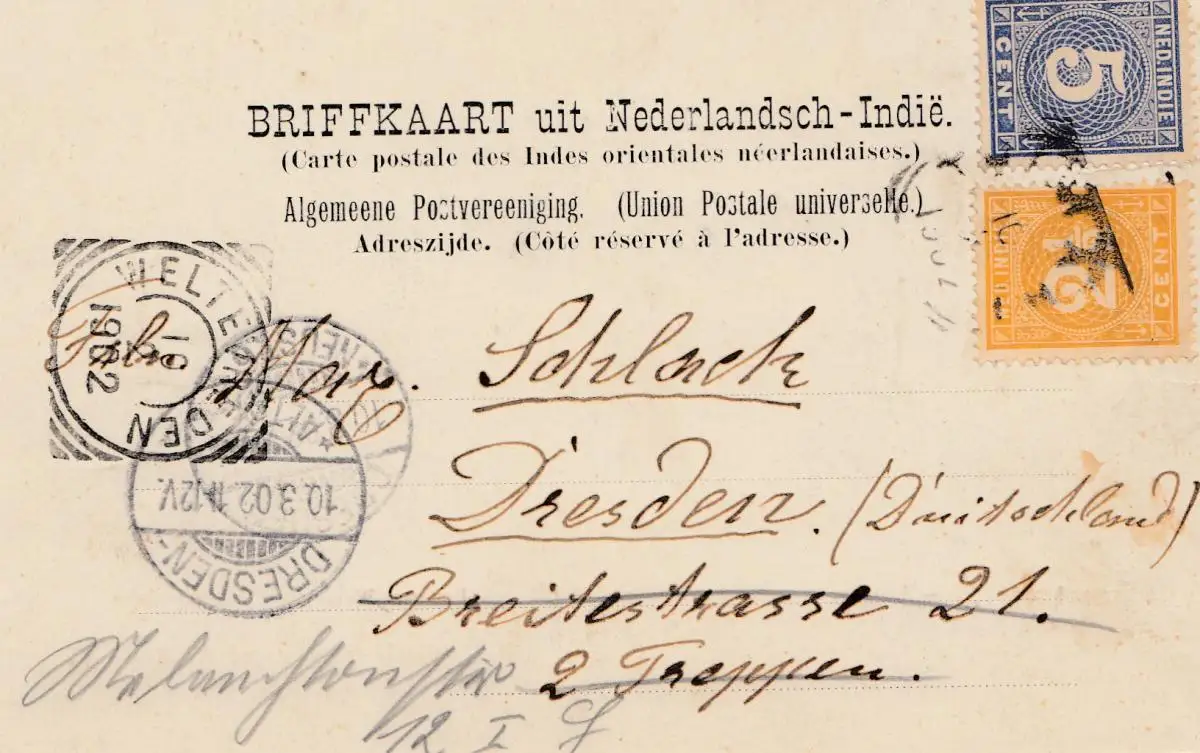 BRIFFKAART uit Nederlandsch-Indië.
(Carte postale des Indes orientales néerlandaises.)
Algemeene Postvereeniging. (Union Postale universelle.)
Adreszijde. (Côté réservé à l'adresse.)
NED. INDIE
5
CENT
NED. INDIE
2½
CENT
WELTEVREDEN
10
1902
Frln Marg. Schlack
Dresden. (Duitschland)
Breitestrasse 21.
2 Treppen.
DRESDEN-ALTST.
10.3.02.11-12V.
Melanchtonstr
12 I